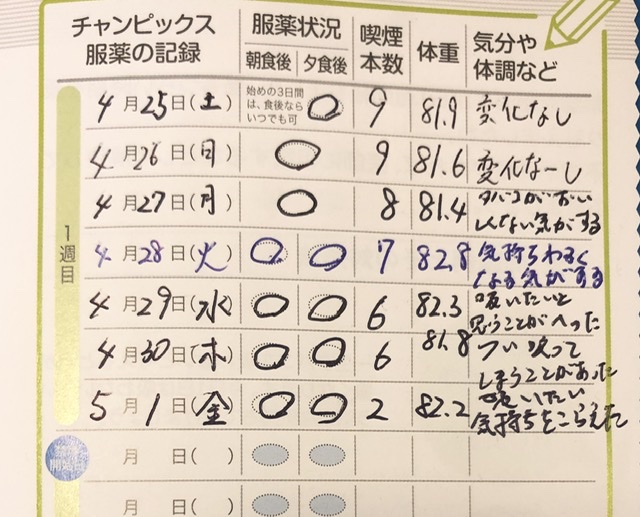 チャンピックス 服薬の記録 服薬状況 喫煙本数 体重 気分や体調など
朝食後 夕食後
4月25日(土) 始めの3日間は、食後ならいつでも可 9 81.9 変化なし
4月26日(日) 9 81.6 変化なーし
4月27日(月) 8 81.4 タバコがおいしくない気がする
4月28日(火) 7 82.8 気持ちわるくなる気がする
4月29日(水) 6 82.3 吸いたいと思うことがへった
4月30日(木) 6 81.8 つい吸ってしまうことがあった
5月1日(金) 2 82.2 吸いたい気持ちをこらえた
1週目
月 日( )
月 日( )